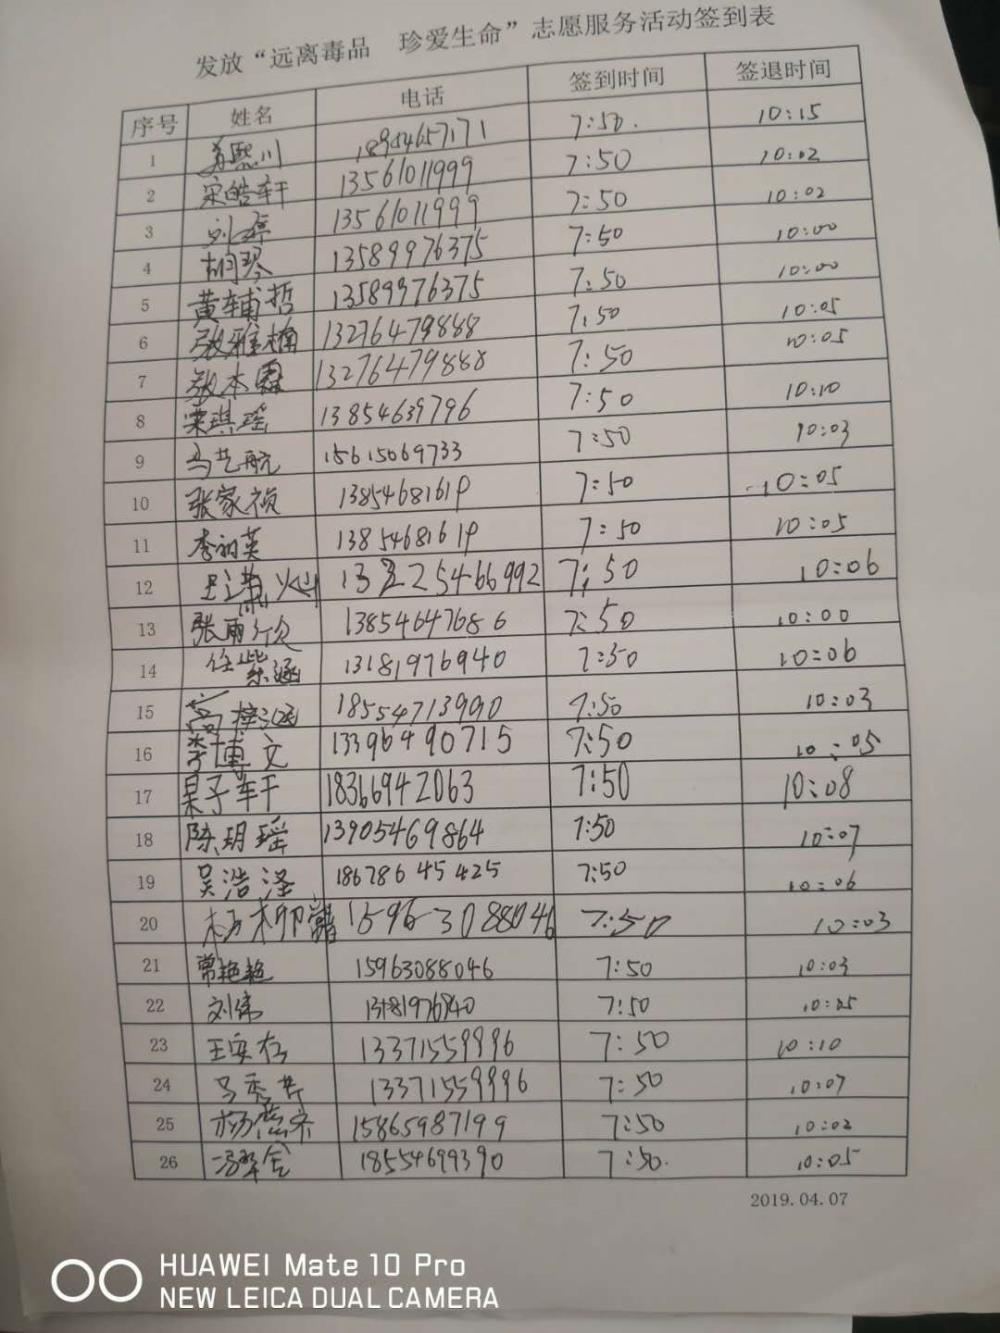 发放“远离毒品 珍爱生命”志愿服务活动签到表
序号 姓名 电话 签到时间 签退时间
1 熙川 18954657171 7:50. 10:15
2 宋皓轩 13561011999 7:50 10:02
3 刘 13561011999 7:50 10:02
4 胡琴 13589976375 7:50 10:00
5 黄辅哲 13589976375 7:50 10:00
6 张雅楠 13276479888 7:50 10:05
7 张本 13276479888 7:50 10:05
8 荣琪瑶 13854639796 7:50 10:10
9 马艺航 15615069733 7:50 10:03
10 张家祯 7:50 10:05
11 李 英 7:50 10:05
12 7:50 10:06
13 张雨欣 13854647686 7:50 10:00
14 任紫涵 13181976940 7:50 10:06
15 高梓涵 18554713990 7:50 10:03
16 李博文 13396490715 7:50 10:05
17 子轩 18366942063 7:50 10:08
18 陈玥瑶 13905469864 7:50 10:07
19 吴浩泽 18678645425 7:50 10:06
20 杨柳 15963088046 7:50 10:03
21 常艳艳 15963088046 7:50 10:03
22 刘伟 7:50 10:05
23 王 13371559996 7:50 10:10
24 马秀芹 13371559996 7:50 10:07
25 杨 15865987199 7:50 10:02
26 冯 18554699390 7:50. 10:05
2019.04.07
HUAWEI Mate 10 Pro
NEW LEICA DUAL CAMERA